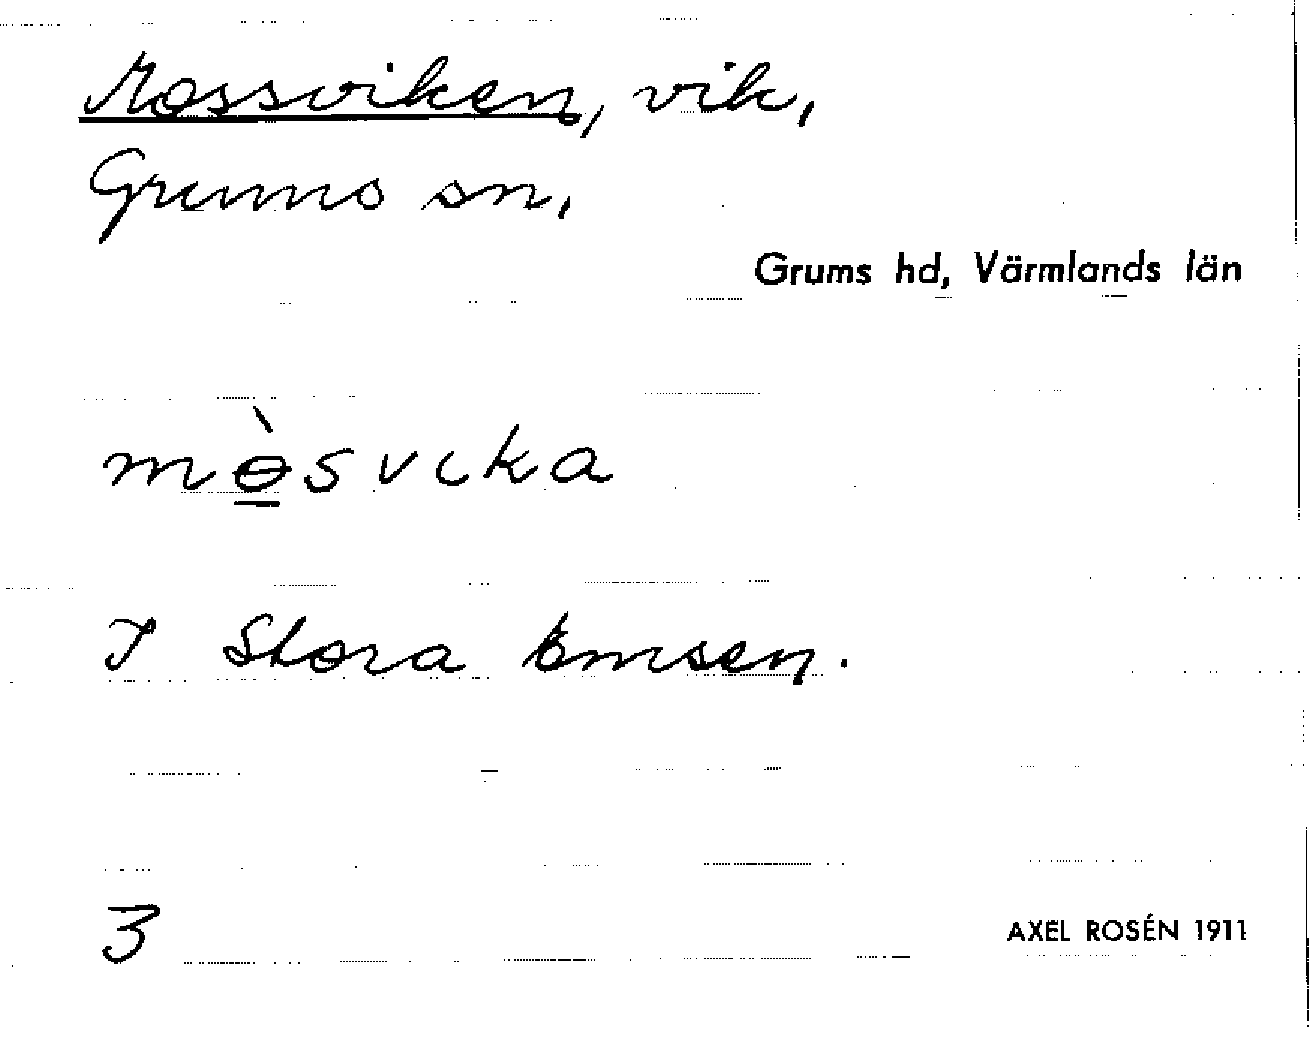 Mossviken, vik,
Grums sn,
Grums hd, Värmlands län
mɵ̲̀svıka
I Stora Emsen.
3
AXEL ROSÉN 1911